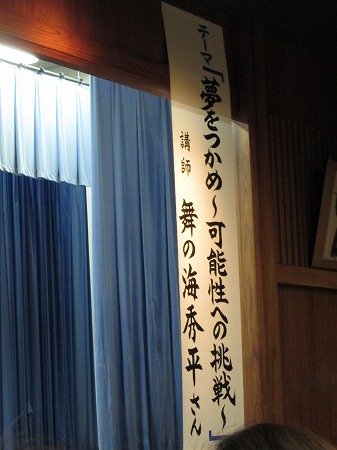 テーマ「夢をつかめ～可能性への挑戦～」
講師 舞の海秀平さん